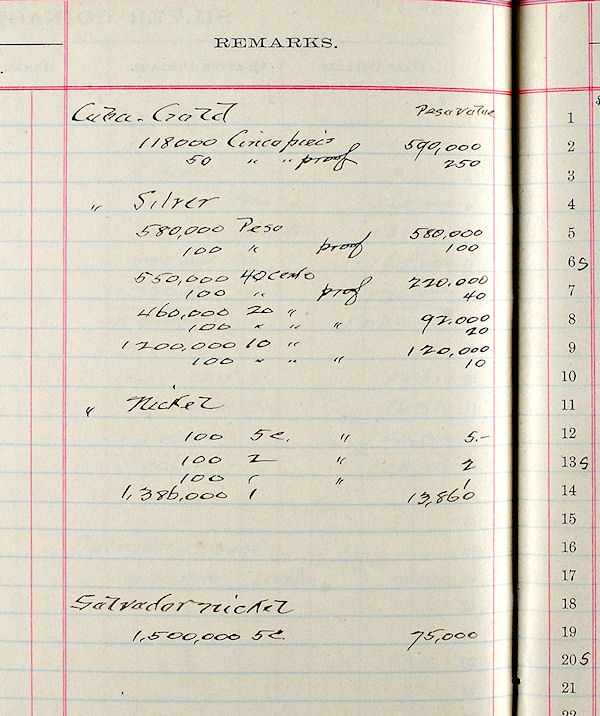 REMARKS.
Cuba - Gold Peso value
118000 Cinco pieces 590,000
50 " " proof 250
" Silver
580,000 Peso 580,000
100 " proof 100
550,000 40 cents 220,000
100 " proof 40
460,000 20 " 92.000
100 " " 20
1200,000 10 " 120,000
100 " " 10
" Nickel
100 5c. " 5.-
100 2 " 2
100 1 " 1
1,386,000 1 13,860
Salvador nickel
1,500,000 5c. 75,000
1
2
3
4
5
6 5
7
8
9
10
11
12
13 5
14
15
16
17
18
19
20 5
21
22